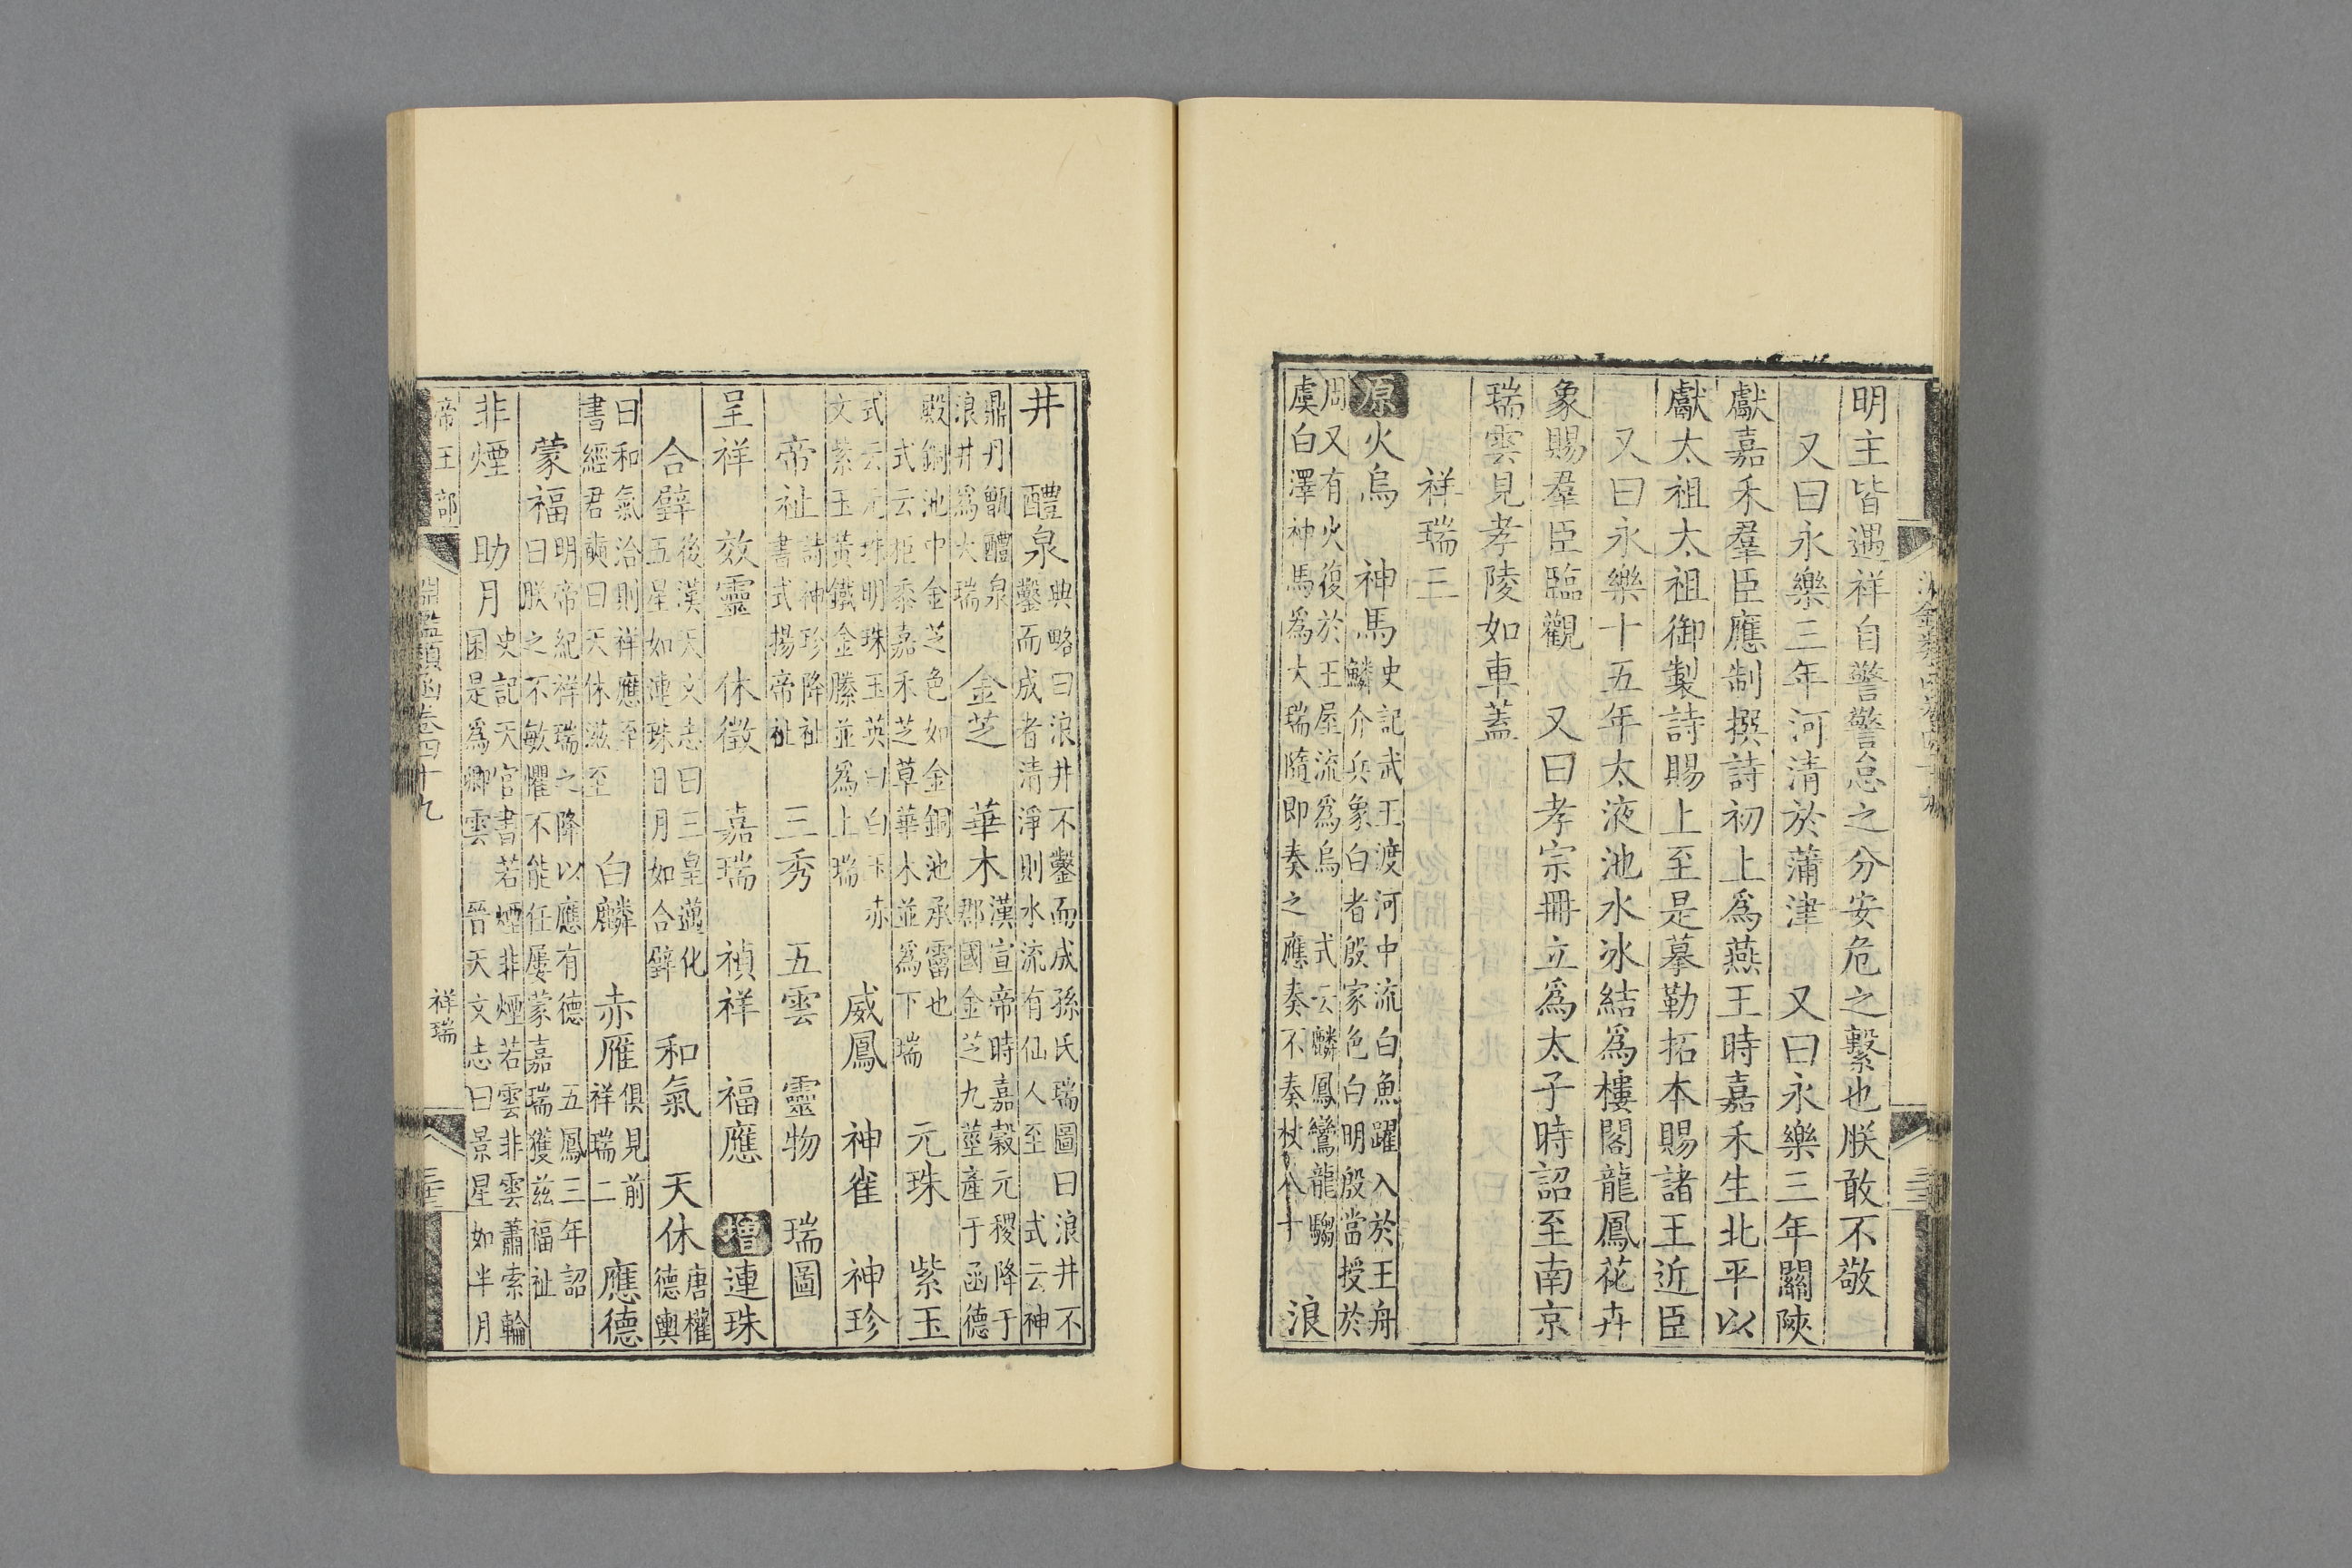 明主皆遇祥自警警怠之分安危之繫也朕敢不敬
又曰永樂三年河清於蒲津 又曰永樂三年關陝
獻嘉禾羣臣應制撰詩初上爲燕王時嘉禾生北平以
獻太祖太祖御製詩賜上至是摹勒拓本賜諸王近臣
又曰永樂十五年太液池水冰結爲樓閣龍鳳花卉
象賜羣臣臨觀 又曰孝宗冊立爲太子時詔至南京
瑞雲見孝陵如車蓋
祥瑞三
原火烏 神馬 史記武王渡河中流白魚躍入於王舟
鱗介兵象白者殷家色白明殷當授於
周又有火復於王屋流爲烏 式云麟鳳鸞龍騶
虞白澤神馬爲大瑞隨即奏之應奏不奏杖八十 浪
井 醴泉 典略曰浪井不鑿而成孫氏瑞圖曰浪井不
鑿而成者清淨則水流有仙人至 式云神
鼎丹甑醴泉
浪井爲大瑞 金芝 華木 漢宣帝時嘉穀元稷降于
郡國金芝九莖產于函德
殿銅池中金芝色如金銅池承霤也
式云秬黍嘉禾芝草華木並爲下瑞 元珠 紫玉
式云元珠明珠玉英曰白玉赤
文紫玉黃鐵金縢並爲上瑞 威鳳 神雀 神珍
帝祉 詩神珍降祉
書式揚帝祉 三秀 五雲 靈物 瑞圖
呈祥 效靈 休徵 嘉瑞 禎祥 福應 增連珠
合璧 後漢天文志曰三皇邁化
五星如連珠日月如合璧 和氣 天休 唐權
德輿
曰和氣洽則祥應至
書經君奭曰天休滋至 白麟 赤雁 俱見前
祥瑞二 應德
蒙福 明帝紀祥瑞之降以應有德 五鳳三年詔
曰朕之不敏懼不能任屢蒙嘉瑞獲兹福祉
非煙 助月 史記天官書若煙非煙若雲非雲蕭索輪
囷是爲卿雲 晉天文志曰景星如半月
帝王部
淵鑑類函卷四十九
祥瑞